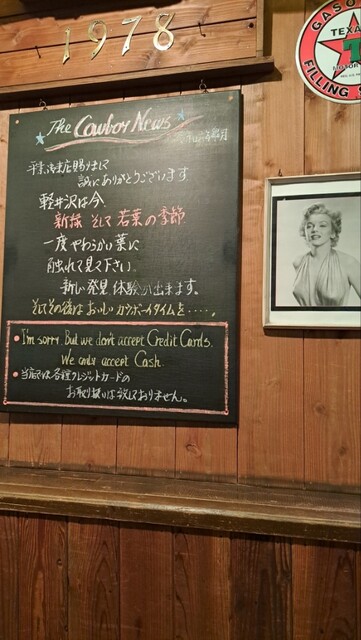 1978
GASO
TEXA
T
MOTOR
FILLING S
The Cowboy News
平素御来店賜りまして
誠にありがとうございます
軽井沢は今、
新緑 そして 若葉の季節
一度やわらかい葉に
触れて見て下さい。
新しい発見、体験が出来ます。
そしてその後はおいしいカウボーイタイムを・・・・・。
• I'm sorry. But we don't accept Credit Cards.
We only accept Cash.
• 当店では各種クレジットカードの
お取り扱いは致しておりません。